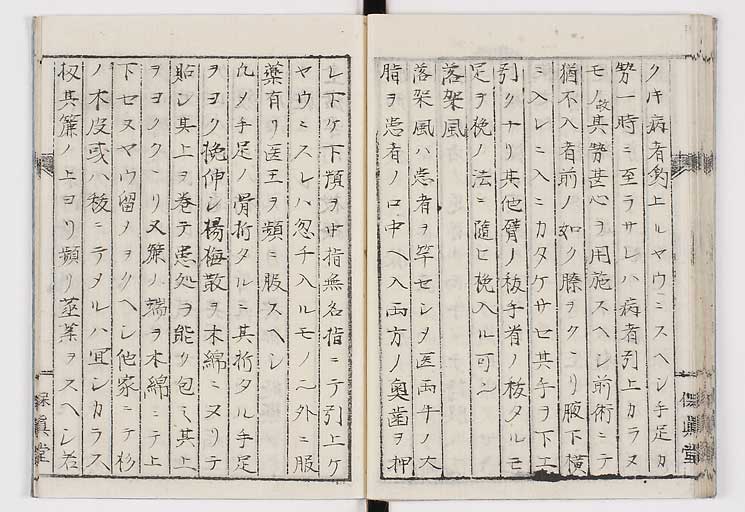 クキ病者釣上ルヤウニスヘシ手足カ
労一時ニ至ラサレハ病者引上カラヌ
モノ故其労甚心ヲ用施スヘシ前術ニテ
猶不入者前ノ如ク膝ヲクヽリ腋下横
ニ入レニ入ニカタケサセ其手ヲ下エ
引クナリ其他臂ノ抜手首ノ抜タルモ
足ヲ挽ノ法ニ随ヒ挽入ル可シ
落架風
落架風ハ患者ヲ竿セシメ医両手ノ大
指ヲ患者ノ口中ヘ入両方ノ奥歯ヲ押
レ下ケ下頬ヲ中指無名指ニテ引上ケ
ヤウニスレハ忽チ入ルモノ也外ニ服
薬有リ医王ヲ頻ニ服スヘシ
凡メ手足ノ骨折タルニ其折タル手足
ヲヨク挽伸シ楊梅散ヲ木綿ニヌリテ
貼シ其上ヲ巻テ患処ヲ能ク包ミ其上
ヲヨクククリ又簾ノ端ヲ木綿ニテ上
下セヌヤウ留ノヲクヘシ他家ニテ杉
ノ木皮或ハ板ニテメルハ宜シカラス
扨其簾ノ上ヨリ頻リ蒸薬ヲスヘシ若
保眞堂
保眞堂